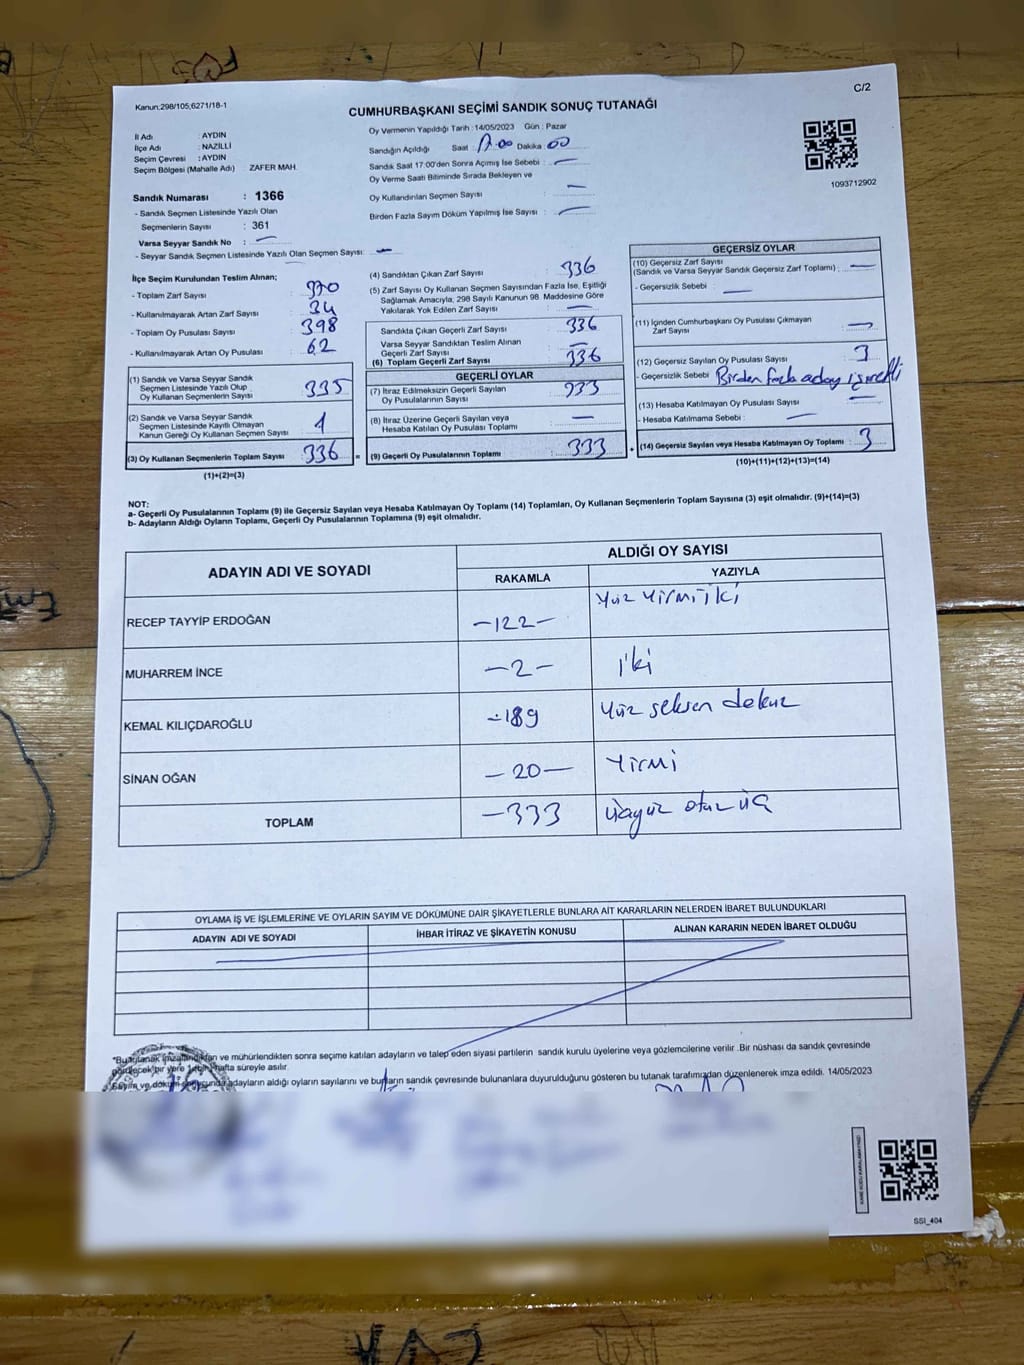 C/2
Kanun:298/105,6271/18-1
CUMHURBAŞKANI SEÇİMİ SANDIK SONUÇ TUTANAĞI
İl Adı : AYDIN
İlçe Adı : NAZİLLİ
Seçim Çevresi : AYDIN
Seçim Bölgesi (Mahalle Adı) ZAFER MAH.
Sandık Numarası : 1366
- Sandık Seçmen Listesinde Yazılı Olan
Seçmenlerin Sayısı : 361
Varsa Seyyar Sandık No : —
- Seyyar Sandık Seçmen Listesinde Yazılı Olan Seçmen Sayısı: —
Oy Vermenin Yapıldığı Tarih :14/05/2023 Gün : Pazar
Sandığın Açıldığı Saat : Dakika : 00
Sandık Saat 17:00'den Sonra Açımış İse Sebebi : —
Oy Verme Saati Bitiminde Sırada Bekleyen ve
Oy Kullandırılan Seçmen Sayısı : —
Birden Fazla Sayım Döküm Yapılmış İse Sayısı : —
1093712902
İlçe Seçim Kurulundan Teslim Alınan;
- Toplam Zarf Sayısı : 370
- Kullanılmayarak Artan Zarf Sayısı : 34
- Toplam Oy Pusulası Sayısı : 398
- Kullanılmayarak Artan Oy Pusulası : 62
(1) Sandık ve Varsa Seyyar Sandık
Seçmen Listesinde Yazılı Olup
Oy Kullanan Seçmenlerin Sayısı : 335
(2) Sandık ve Varsa Seyyar Sandık
Seçmen Listesinde Kayıtlı Olmayan
Kanun Gereği Oy Kullanan Seçmen Sayısı : 1
(3) Oy Kullanan Seçmenlerin Toplam Sayısı : 336 =
(1)+(2)=(3)
(4) Sandıktan Çıkan Zarf Sayısı : 336
(5) Zarf Sayısı Oy Kullanan Seçmen Sayısından Fazla İse, Eşitliği
Sağlamak Amacıyla, 298 Sayılı Kanunun 98. Maddesine Göre
Yakılarak Yok Edilen Zarf Sayısı : —
Sandıkta Çıkan Geçerli Zarf Sayısı : 336
Varsa Seyyar Sandıktan Teslim Alınan
Geçerli Zarf Sayısı : —
(6) Toplam Geçerli Zarf Sayısı : 336
GEÇERLİ OYLAR
(7) İtiraz Edilmeksizin Geçerli Sayılan
Oy Pusulasının Sayısı : 333
(8) İtiraz Üzerine Geçerli Sayılan veya
Hesaba Katılan Oy Pusulası Toplamı : —
(9) Geçerli Oy Pusulalarının Toplamı : 333 +
GEÇERSİZ OYLAR
(10) Geçersiz Zarf Sayısı
(Sandık ve Varsa Seyyar Sandık Geçersiz Zarf Toplamı) : —
- Geçersizlik Sebebi : —
(11) İçinden Cumhurbaşkanı Oy Pusulası Çıkmayan
Zarf Sayısı : —
(12) Geçersiz Sayılan Oy Pusulası Sayısı : 3
- Geçersizlik Sebebi : Birden fazla aday işaretli
(13) Hesaba Katılmayan Oy Pusulası Sayısı : —
- Hesaba Katılmama Sebebi : —
(14) Geçersiz Sayılan veya Hesaba Katılmayan Oy Toplamı : 3
(10)+(11)+(12)+(13)=(14)
NOT:
a- Geçerli Oy Pusulalarının Toplamı (9) ile Geçersiz Sayılan veya Hesaba Katılmayan Oy Toplamı (14) Toplamları, Oy Kullanan Seçmenlerin Toplam Sayısına (3) eşit olmalıdır. (9)+(14)=(3)
b- Adayların Aldığı Oyların Toplamı, Geçerli Oy Pusulalarının Toplamına (9) eşit olmalıdır.
ADAYIN ADI VE SOYADI ALDIĞI OY SAYISI
RAKAMLA YAZIYLA
RECEP TAYYİP ERDOĞAN -122- Yüz Yirmi iki
MUHARREM İNCE -2- iki
KEMAL KILIÇDAROĞLU -189 Yüz seksen dokuz
SİNAN OĞAN -20- Yirmi
TOPLAM -333 üçyüz otuz üç
OYLAMA İŞ VE İŞLEMLERİNE VE OYLARIN SAYIM VE DÖKÜMÜNE DAİR ŞİKAYETLERLE BUNLARA AİT KARARLARIN NELERDEN İBARET BULUNDUKLARI
ADAYIN ADI VE SOYADI İHBAR İTİRAZ VE ŞİKAYETİN KONUSU ALINAN KARARIN NEDEN İBARET OLDUĞU
*Bu tutanak imzalandıktan ve mühürlendikten sonra seçime katılan adayların ve talep eden siyasi partilerin sandık kurulu üyelerine veya gözlemcilerine verilir .Bir nüshası da sandık çevresinde
görülecek bir yere 1 hafta süreyle asılır.
Sayım ve döküm sonucunda adayların aldığı oyların sayılarını ve bunların sandık çevresinde bulunanlara duyurulduğunu gösteren bu tutanak tarafımızdan düzenlenerek imza edildi. 14/05/2023
KARE KODU KARALAMAYINIZ!
SSI_404